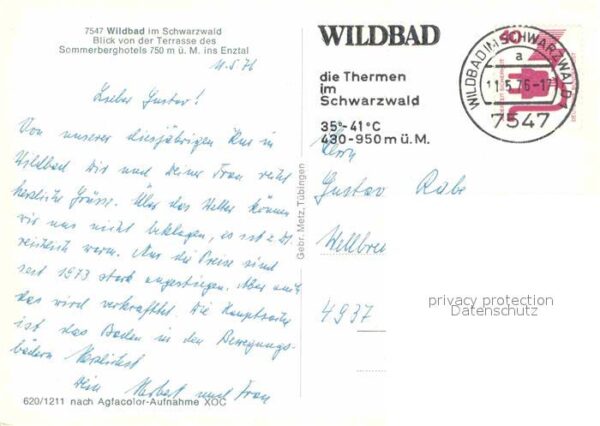 7547 Wildbad im Schwarzwald
Blick von der Terrasse des
Sommerberghotels 750 m ü. M. ins Enztal
11.5.76
Lieber Gustav!
Von unserer diesjährigen Kur in
Wildbad Dir und Deiner Frau recht
herzliche Grüsse. Über das Wetter können
wir uns nicht beklagen, es ist z. Zt.
reichlich warm. Nur die Preise sind
seit 1973 stark angestiegen. Aber auch
das wird verkraftet. Die Hauptsache
ist das Baden in den Bewegungs-
bädern Herzlichst
Dein Herbert und Frau
620/1211 nach Agfacolor-Aufnahme XOC
Gebr. Metz, Tübingen
WILDBAD
die Thermen
im
Schwarzwald
35°-41°C
430-950 m ü. M.
WILDBAD IM SCHWARZWALD 1
a
11.5.76-17
7547
40
Herrn
Gustav Rabe
4937
privacy protection
Datenschutz